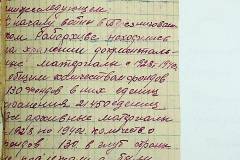 нижеследующем:
К началу войны в
ком Райархиве находились
на хранении документаль-
ные материалы с 1928г. по 1940г.
общим количеством фондов
130 фондов в них единиц
хранения 21450 единиц
архивные материалы
1928 по 1940г. количеств о
фондов 130. в них